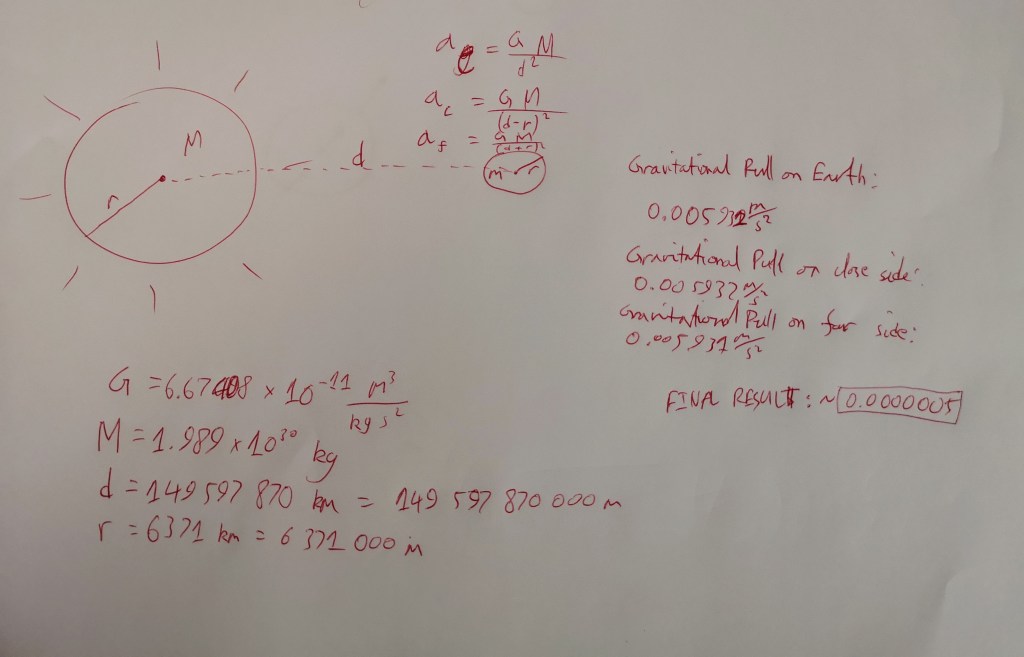 a_e = GM/d²
a_c = GM/(d-r)²
a_f = GM/(d+r)²
M
d
r
m r
Gravitational Pull on Earth:
0.005931 m/s²
Gravitational Pull on close side:
0.005932 m/s²
Gravitational Pull on far side:
0.005931 m/s²
FINAL RESULT: ~ 0.0000005
G = 6.67408 × 10⁻¹¹ m³/kg s²
M = 1.989 × 10³⁰ kg
d = 149 597 870 km = 149 597 870 000 m
r = 6371 km = 6 371 000 m